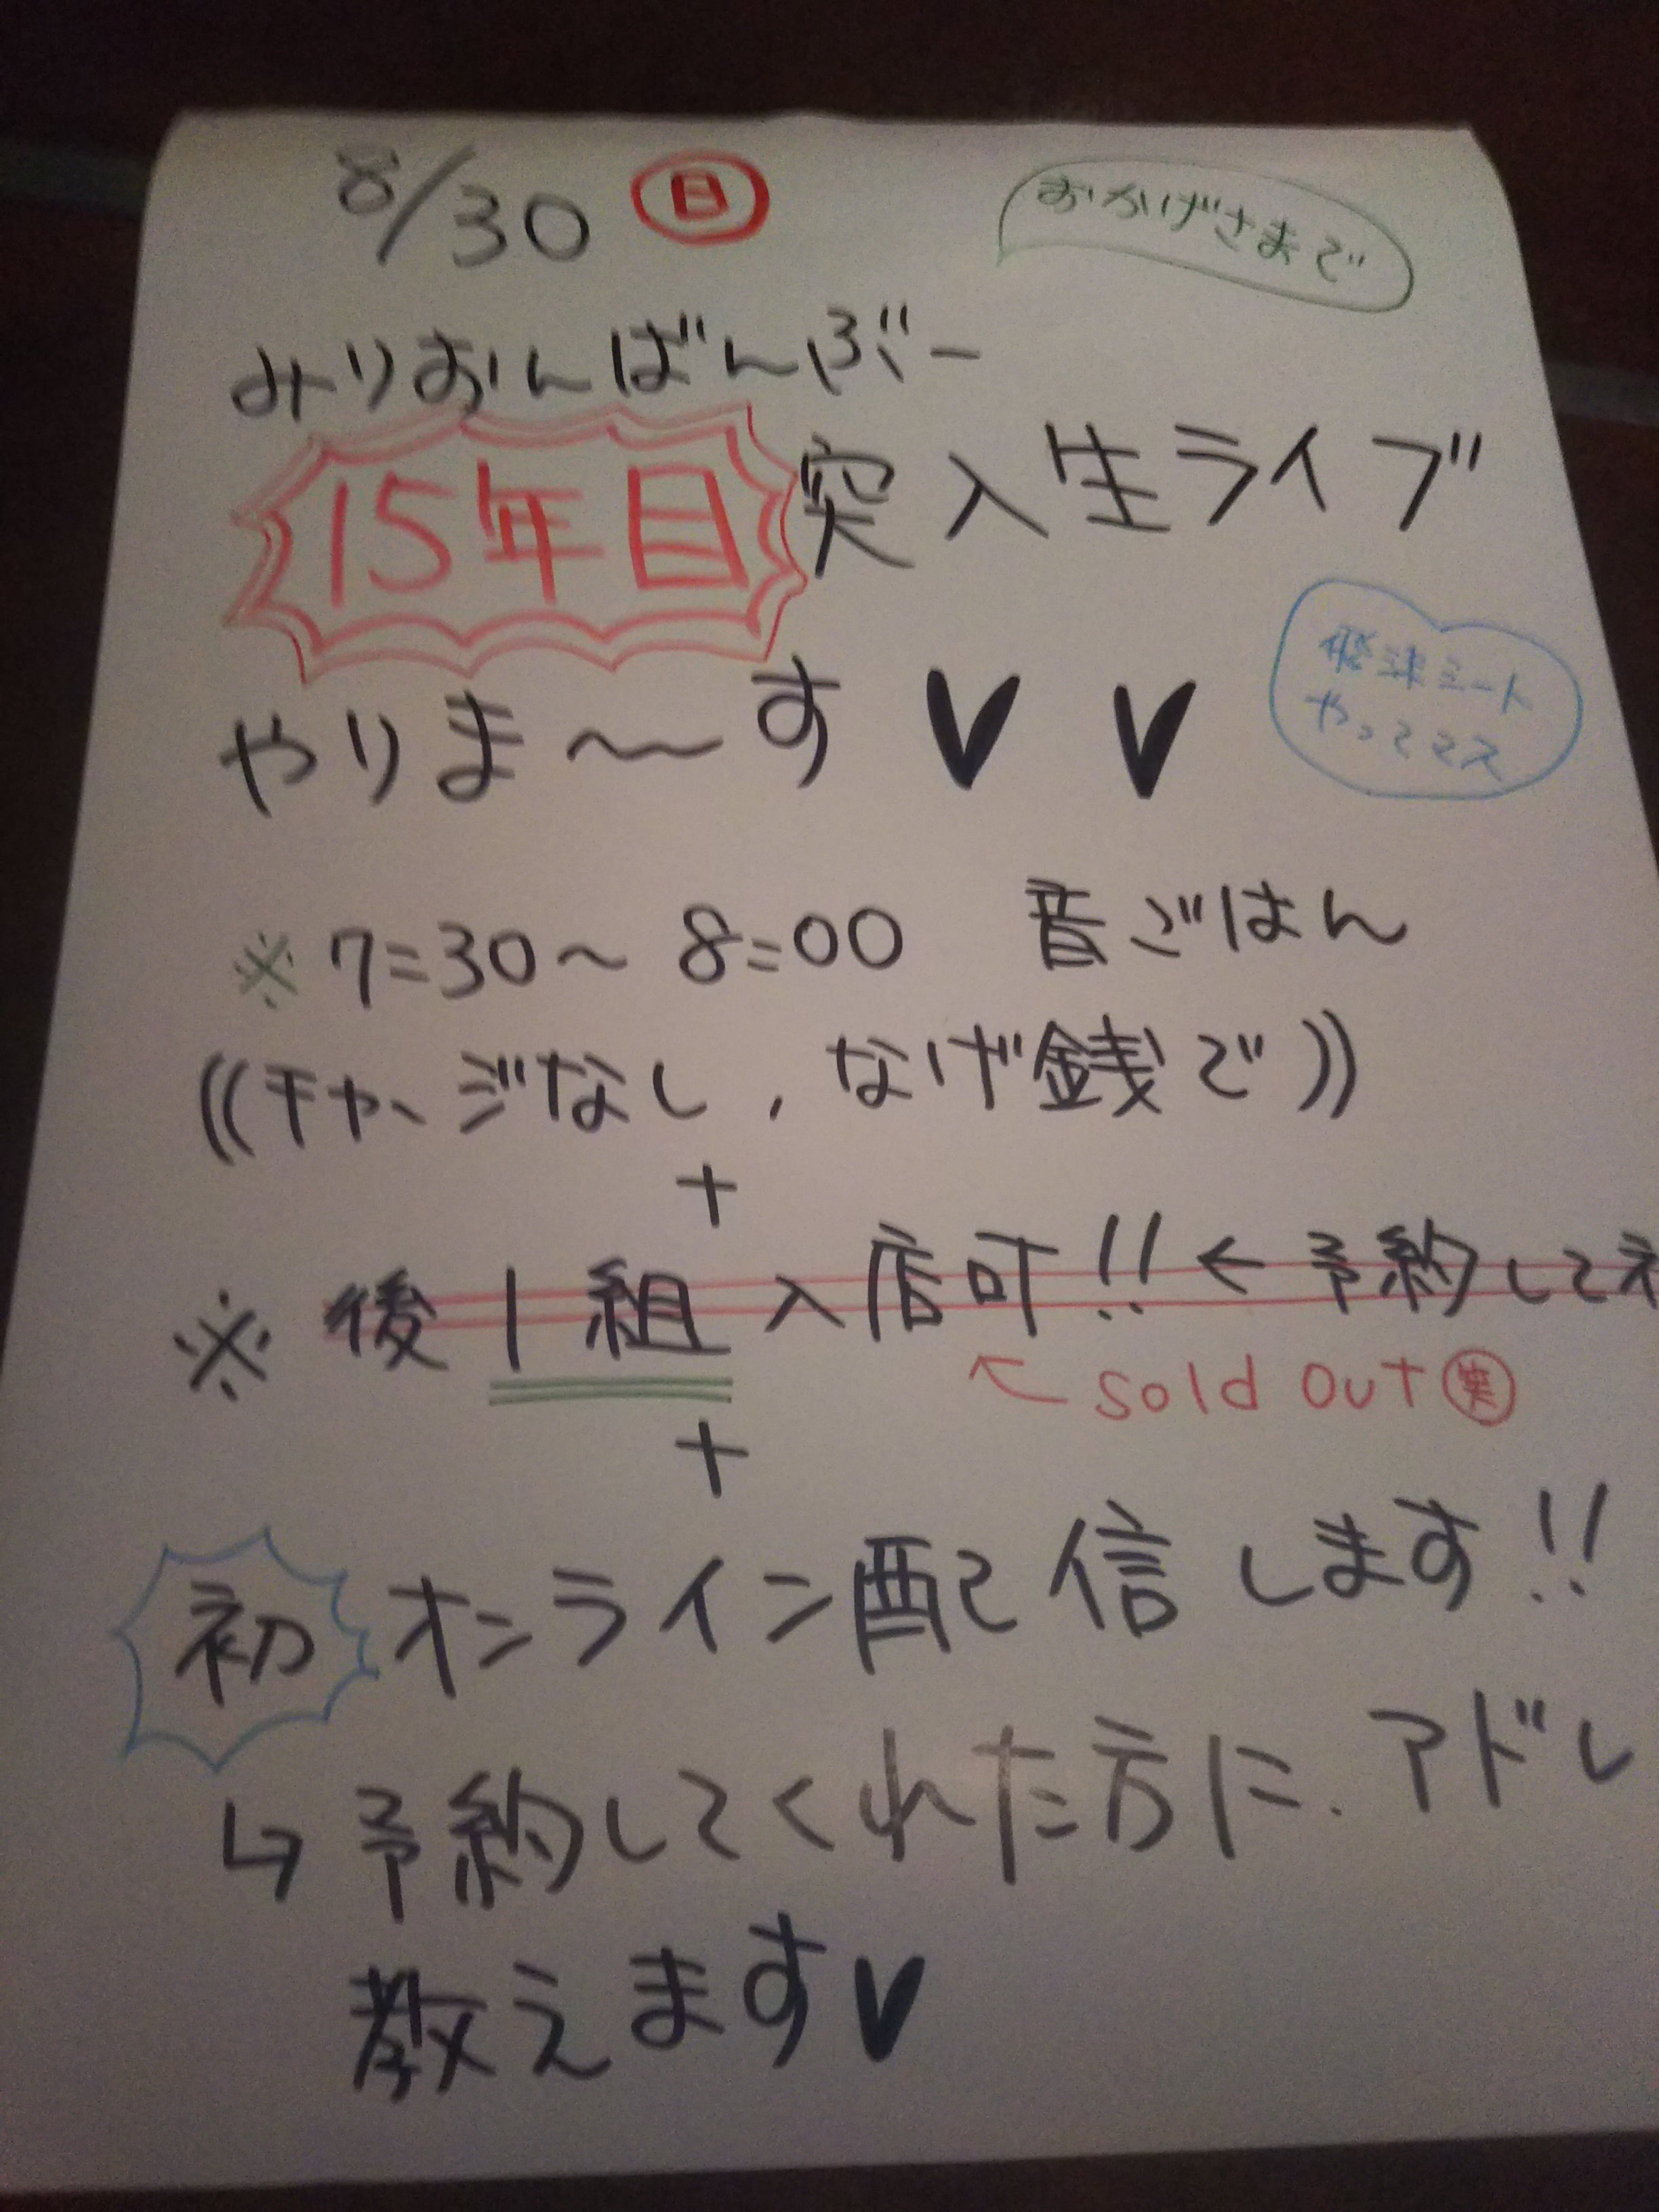 8/30 ㊐
おかげさまで
みりおんばんぶー
15年目突入生ライブ
やりま〜す♥♥
ミート
やってマス
※7:30〜8:00 音ごはん
((チャージなし,なげ銭で))
+
※後1組入店可!!←予約してネ
←sold out㊢
+
初オンライン配信します!!
↳予約してくれた方に、アドレ
教えます♥